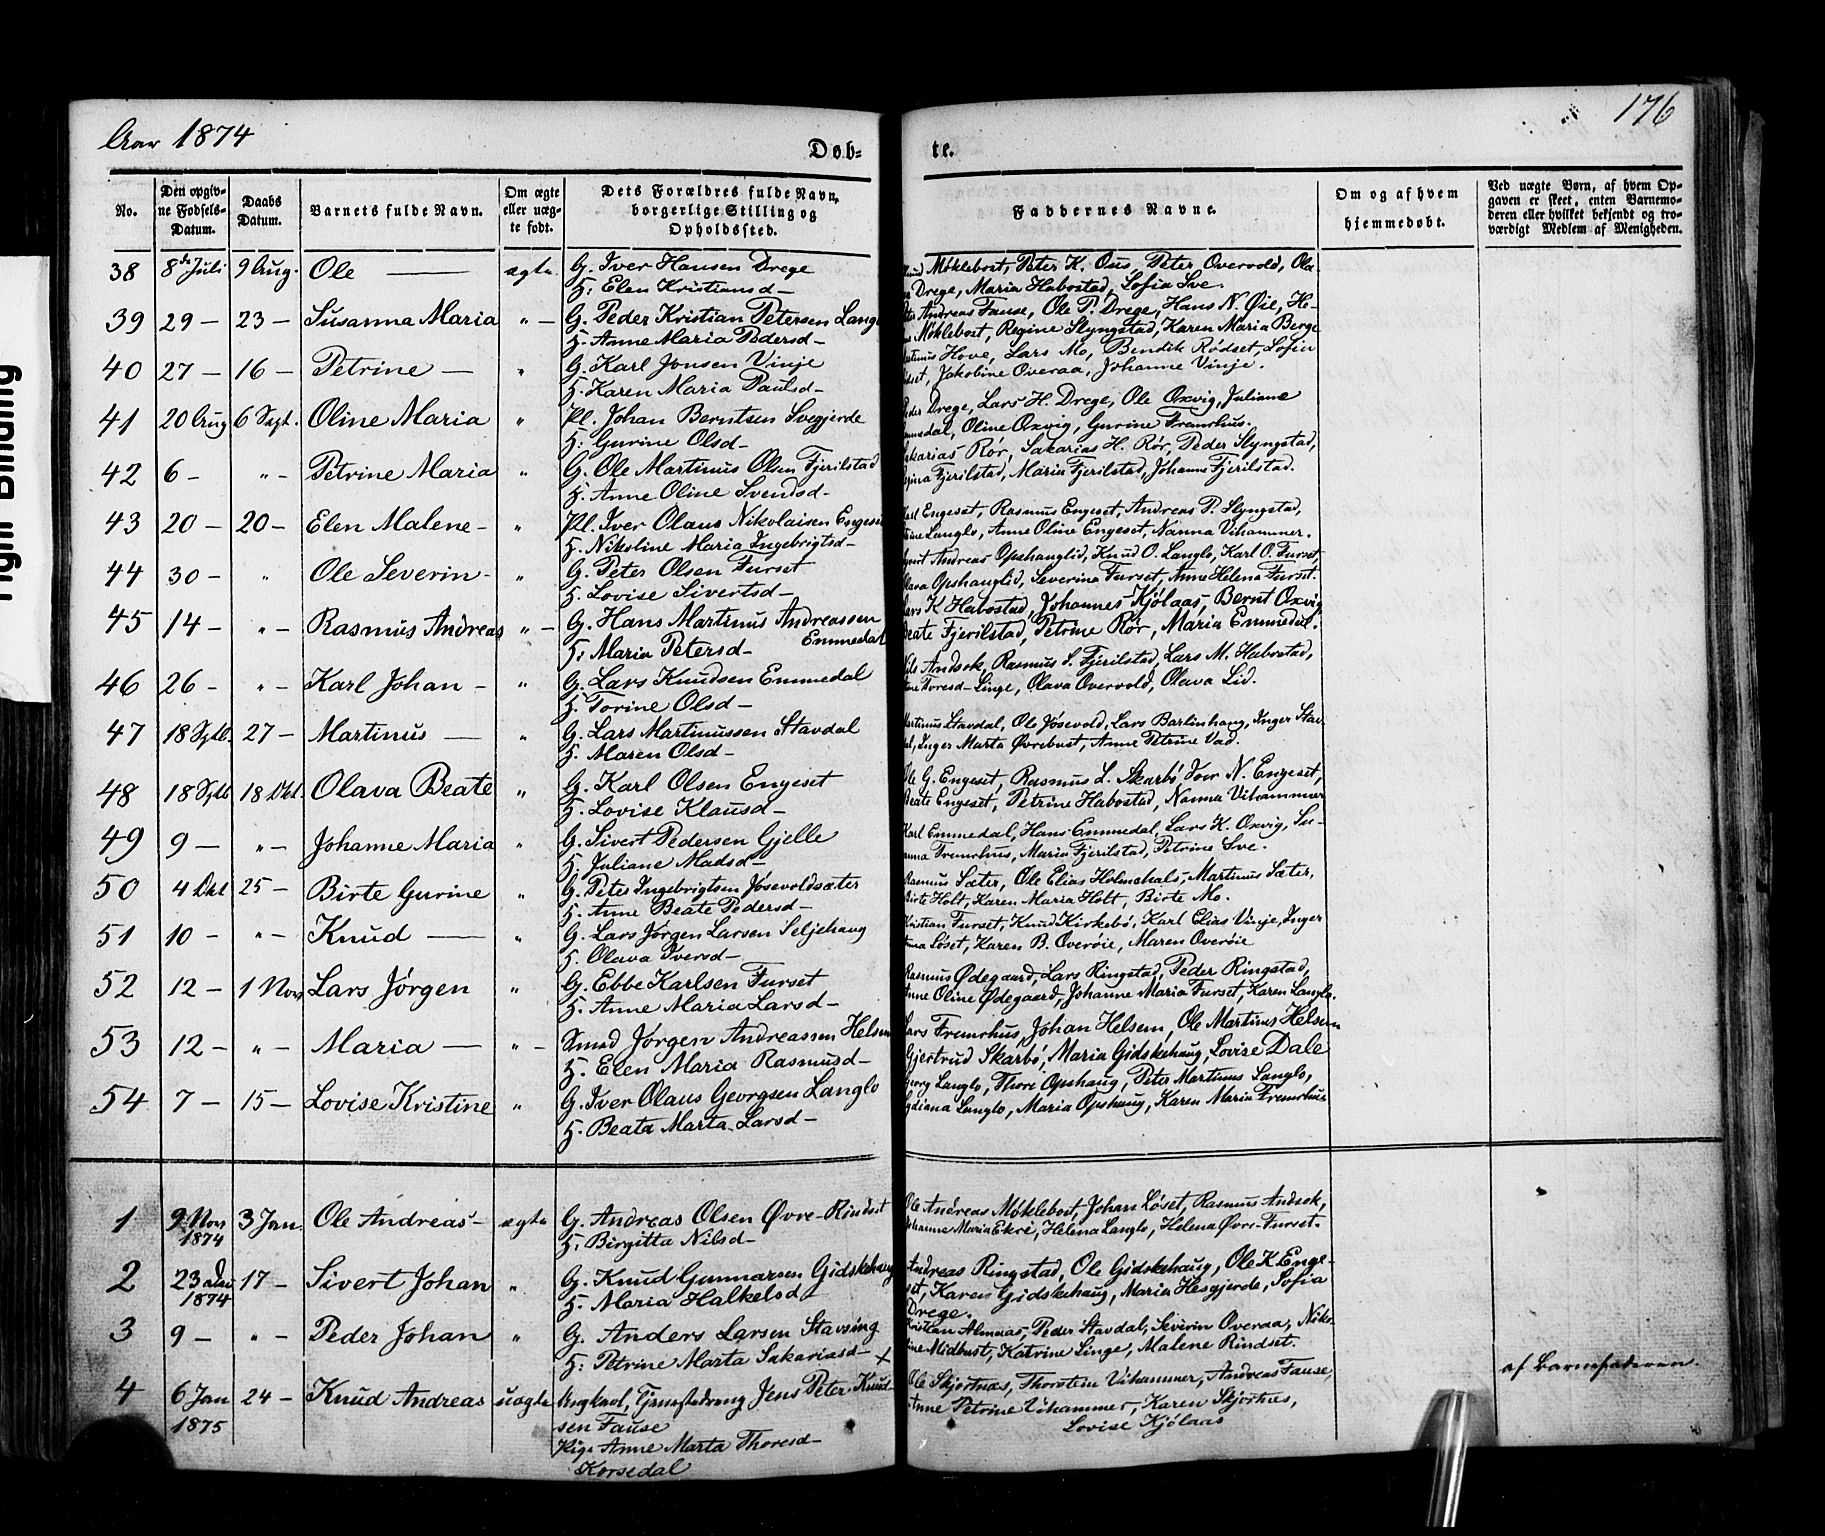 Aar 1874
Døb=
te.
176
No.
Den opgiv-
ne Fødsels-
Datum.
Daabs
Datum.
Barnets fulde Navn.
Om ægte
eller uæg-
te født.
Dets Forældres fulde Navn,
borgerlige Stilling og
Opholdssted.
Faddernes Navne.
Om og af hvem
hjemmedøbt.
Ved uægte Børn, af hvem Op-
gaven er skeet, enten Barnemo-
deren eller hvilket bekjendt og tro-
værdigt Medlem af Menigheden.
38 8de Juli 9 Aug. Ole — ægte G. Iver Hansen Drege Møklebost, Peter K. Ous, Peter Overvold, Ola
H: Elen Kristiansd — Drege, Maria Habostad, Sofia Sve.
39 29 — 23 — Susanna Maria " — G. Peder Kristian Petersen Langl Andreas Fause, Ole P. Drege, Hans N. Øie, He-
H. Anne Maria Pedersd — Møklebost, Regine Slyngstad, Karen Maria Berge
40 27 — 16 — Petrine — " G. Karl Jonsen Vinje Hove, Lars Mo, Bendik Rødset, Sofia
H. Karen Maria Paulsd — Jakobine Overaa, Johanne Vinje.
41 20 Aug 6 Sept. Oline Maria " Pl. Johan Berntsen Svegjerde Peder Drege, Lars H. Drege, Ole Oxvig, Juliane
H: Gurine Olsd — Oline Oxvig, Gurine Fremrhus.
42 6 — " — Petrine Maria " G. Ole Martinus Olsen Fjerilstad Sakarias Rør, Sakarias H. Rør, Peder Slyngstad,
H. Anne Oline Svendsd — Fjerilstad, Maria Fjerilstad, Johanna Fjerilstad.
43 20 — 20 — Elen Malene — " Pl. Iver Olaus Nikolaisen Engeset Engeset, Rasmus Engeset, Andreas P. Slyngstad,
H. Nikoline Maria Ingebrigtsd — Langlo, Anne Oline Engeset, Nanna Vihammer.
44 30 — " Ole Severin — " G. Peter Olsen Furset Andreas Opshauglid, Knud O. Langlo, Karl O. Furset,
H. Lovise Sivertsd — Olava Opshauglid, Severine Furset, Anne Helena Furset.
45 14 — " — Rasmus Andreas " — G. Hans Martinus Andreassen Lars K Habostad, Johannes Kjølaas, Bernt Oxvig,
Emmedal
H: Maria Petersd — Beate Fjerilstad, Petrine Rør, Maria Emmedal.
46 26 — " — Karl Johan — " G. Lars Knudsen Emmedal Nils Andsok, Rasmus S. Fjerilstad, Lars M. Habostad,
H. Torine Olsd — Toresd — Linge, Olava Overvold, Olava Lid.
47 18 Sptb. 27 — Martinus — " G. Lars Martinussen Stavdal Martinus Stavdal, Ole Jøsevold, Lars Barlinhaug, Inger Stav-
H. Maren Olsd — Inger Marta Øvrebust, Anne Petrine Vad.
48 18 Sptb 18 Okt. Olava Beate " G. Karl Olsen Engeset Ole G. Engeset, Rasmus L. Skarbø, Iver N. Engeset,
H. Lovise Klausd — Beate Engeset, Petrine Habostad, Nanna Vihammer
49 9 — " — Johanne Maria " G. Sivert Pedersen Gjelle Karl Emmedal, Hans Emmedal, Lars K. Oxvig, Su-
H. Juliane Madsd — Fremrhus, Maria Fjerilstad, Petrine Sve.
50 4 Okt 25 — Birte Gurine " G. Peter Ingebrigtsen Jøsevoldsæter Rasmus Sæter, Ole Elias Holmehals, Martinus Sæter,
H. Anne Beate Pedersd — Birte Holt, Karen Maria Holt, Birte Mo.
51 10 — " — Knud — " G. Lars Jørgen Larsen Seljehaug Kristian Furset, Knud Kirkebø, Karl Elias Vinje, Inger
H. Olava Iversd — Løset, Karen B. Overøie, Maren Overøie
52 12 — 1 Nov Lars Jørgen " G. Ebbe Karlsen Furset Rasmus Ødegaard, Lars Ringstad, Peder Ringstad,
H. Anne Maria Larsd — Anne Oline Ødegaard, Johanne Maria Furset, Karen Langlo.
53 12 — " — Maria — " — Smed Jørgen Andreassen Helsem Lars Fremrhus, Johan Helsem, Ole Martinus Helsem
H. Elen Maria Rasmusd — Gjertrud Skarbø, Maria Gidskehaug, Lovise Dale
54 7 — 15 — Lovise Kristine " G. Iver Olaus Georgsen Langlo Georg Langlo, Thore Opshaug, Peter Martinus Langlo,
H. Beata Marta Larsd — Langlo, Maria Opshaug, Karen Maria Fremrhus
1 9 Nov 3 Jan. Ole Andreas — ægte G. Andreas Olsen Øvre-Rindset Ole Andreas Møklebost, Johan Løset, Rasmus Andsok,
1874 H: Birgitta Nilsd — Johanne Maria Ekre, Helena Langlo, Helena Øvre-Furset.
2 23 Dec 17 — Sivert Johan " G. Knud Gunnarsen Gidskehaug Andreas Ringstad, Ole Gidskehaug, Ole K Enge-
1874 H. Maria Halkelsd set, Karen Gidskehaug, Maria Hesgjerde, Sofia
Drege.
3 9 — " — Peder Johan " G. Anders Larsen Stavsing Kristian Almaas, Peder Stavdal, Severin Overaa, Niko-
H: Petrine Marta Sakariasd — x line Midbust, Katrine Linge, Malene Rindset.
4 6 Jan 24 — Knud Andreas uægte Ungkarl, Tjenestedreng Jens Peter Knud- Ole Skjortnæs, Thorstein Vihammer, Andreas Fause, af Barnefaderen.
1875 sen Fause Anne Petrine Vihammer, Karen Skjortnæs,
Pige Anne Marta Thoresd — Lovise Kjølaas
Korsedal
Tight Binding